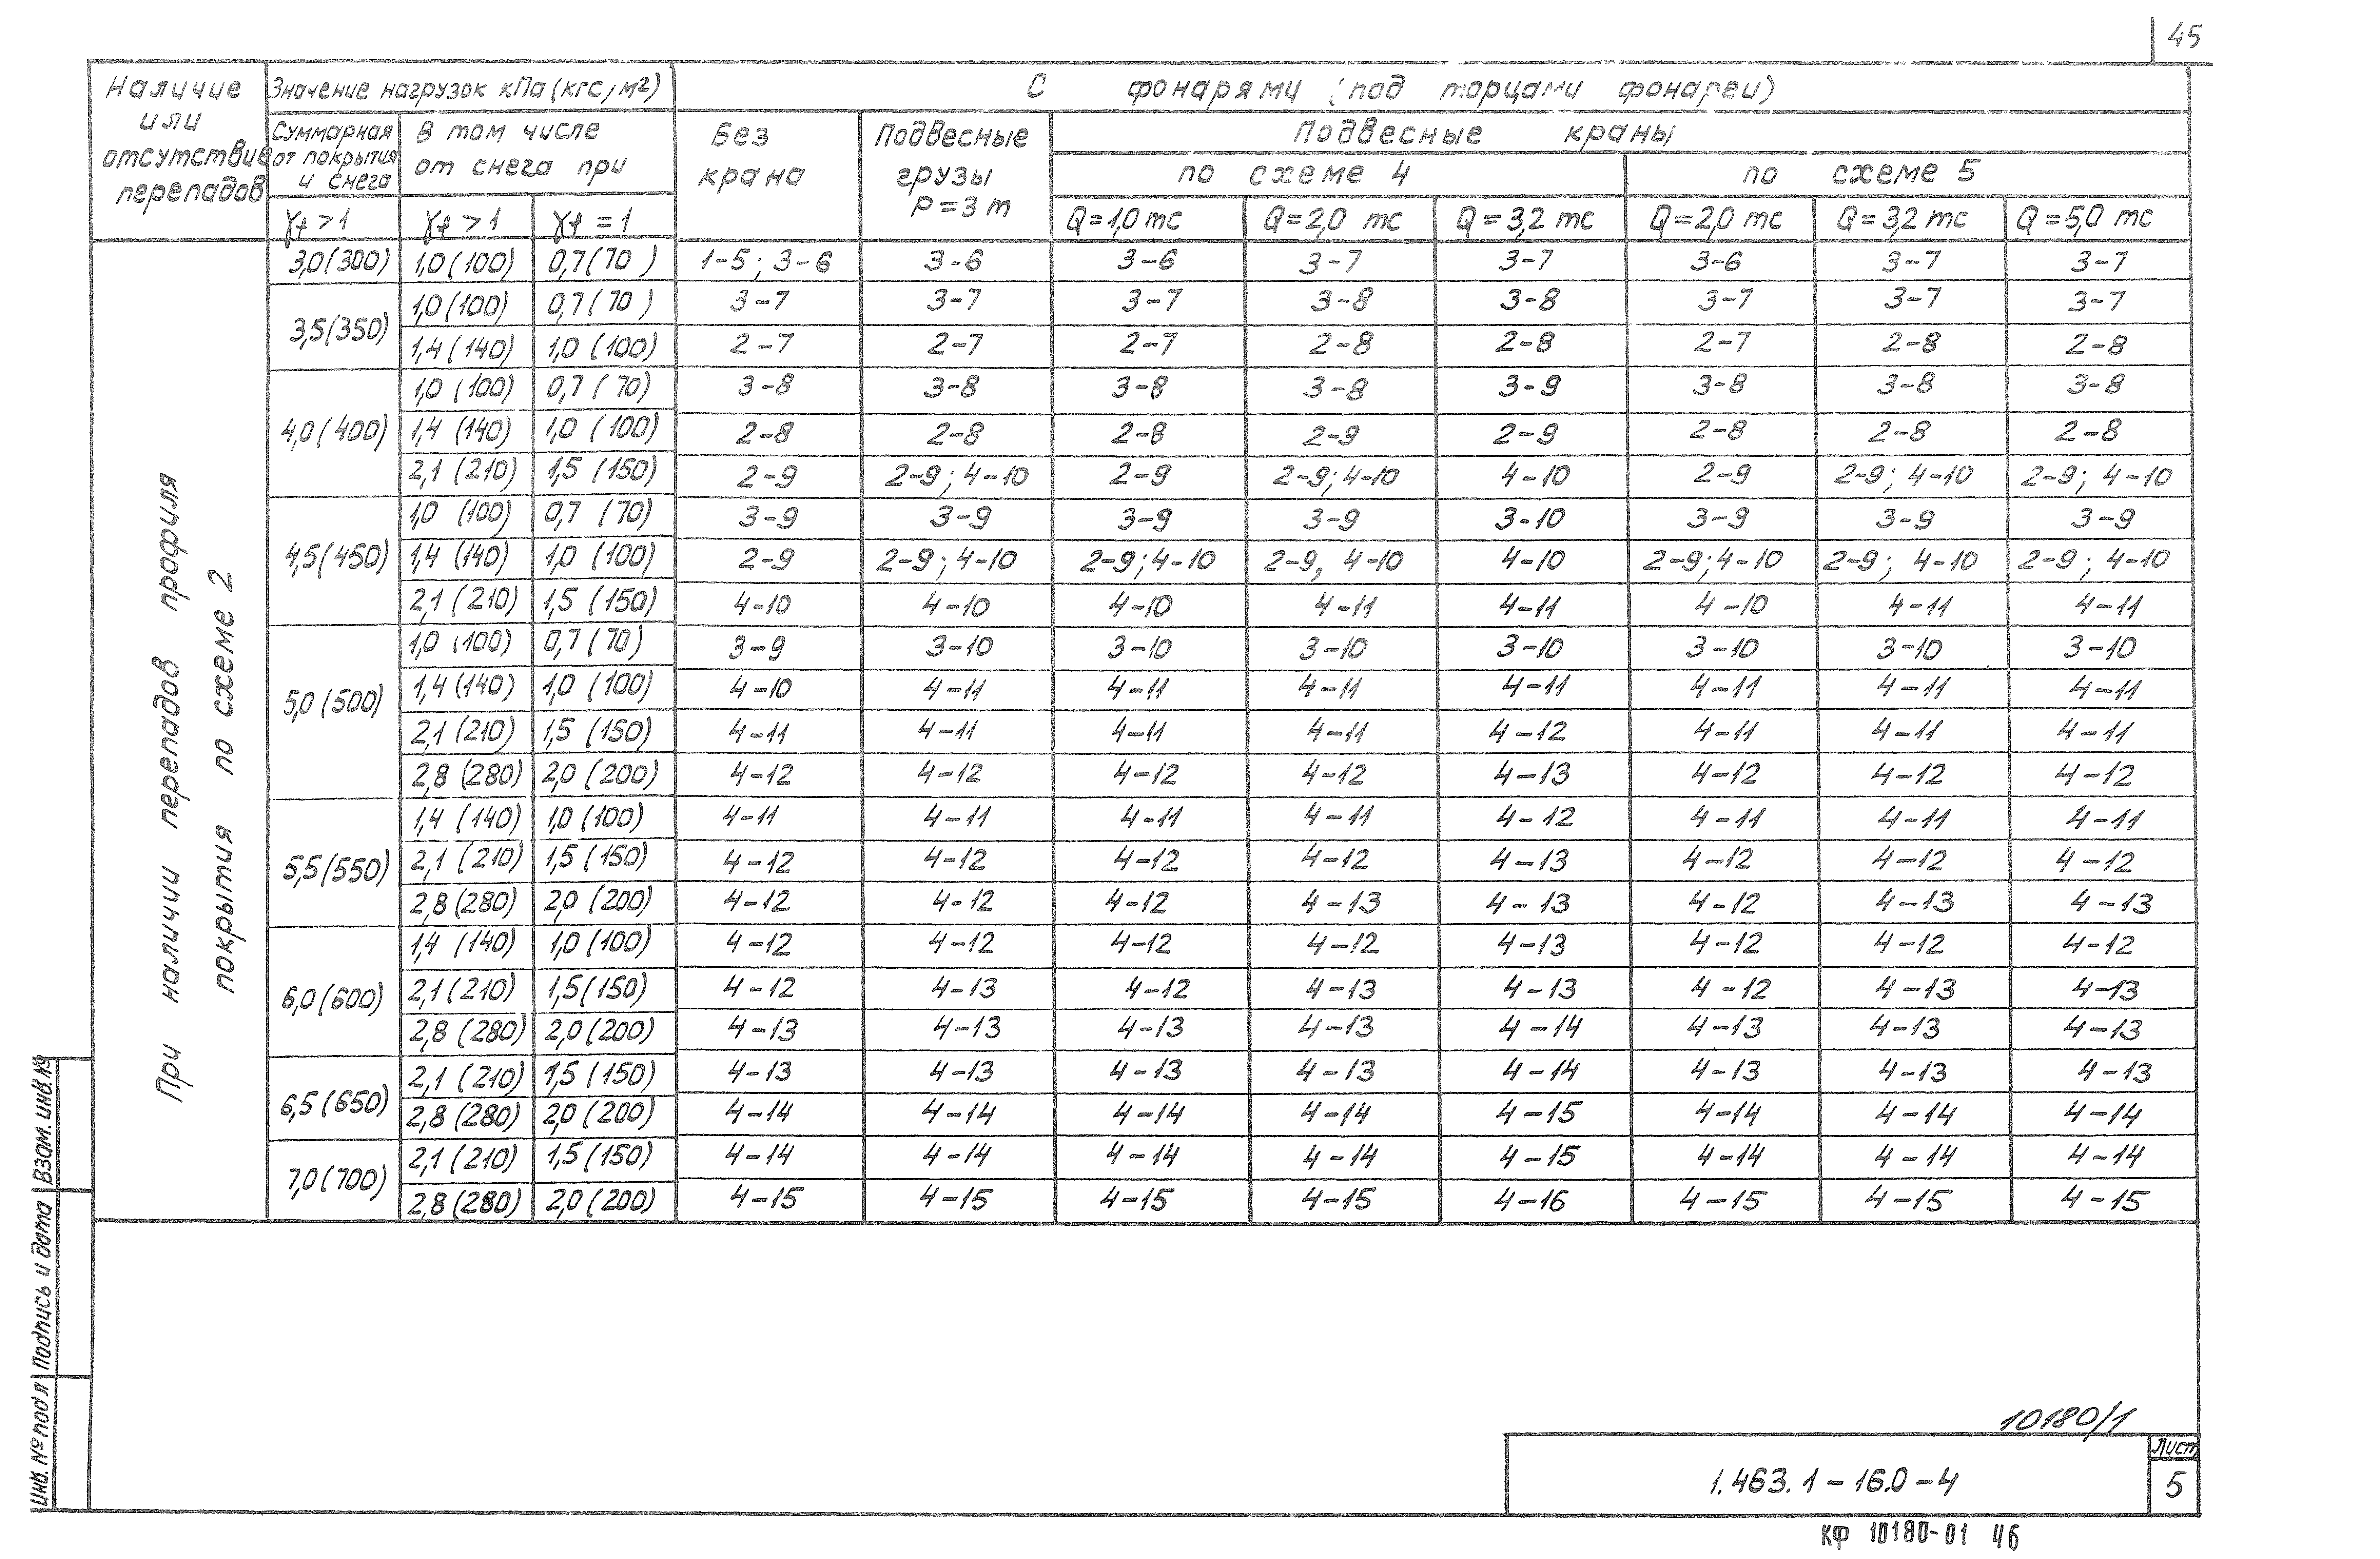 45
Наличие или отсутствие перепадов
Значение нагрузок кПа (кгс/м²)
С фонарями (под торцами фонарей)
Суммарная от покрытия и снега
В том числе от снега при
Без крана
Подвесные грузы P=3т
Подвесные краны
по схеме 4
по схеме 5
γf >1 γf >1 γf =1 Q=1,0 тс Q=2,0 тс Q=3,2 тс Q=2,0 тс Q=3,2 тс Q=5,0 тс
При наличии перепадов профиля
покрытия по схеме 2
3,0(300) 1,0(100) 0,7(70) 1-5; 3-6 3-6 3-6 3-7 3-7 3-6 3-7 3-7
3,5(350) 1,0(100) 0,7(70) 3-7 3-7 3-7 3-8 3-8 3-7 3-7 3-7
1,4(140) 1,0(100) 2-7 2-7 2-7 2-8 2-8 2-7 2-8 2-8
4,0(400) 1,0(100) 0,7(70) 3-8 3-8 3-8 3-8 3-9 3-8 3-8 3-8
1,4(140) 1,0(100) 2-8 2-8 2-8 2-9 2-9 2-8 2-8 2-8
2,1(210) 1,5(150) 2-9 2-9; 4-10 2-9 2-9; 4-10 4-10 2-9 2-9; 4-10 2-9; 4-10
4,5(450) 1,0(100) 0,7(70) 3-9 3-9 3-9 3-9 3-10 3-9 3-9 3-9
1,4(140) 1,0(100) 2-9 2-9; 4-10 2-9; 4-10 2-9, 4-10 4-10 2-9; 4-10 2-9; 4-10 2-9; 4-10
2,1(210) 1,5(150) 4-10 4-10 4-10 4-11 4-11 4-10 4-11 4-11
5,0(500) 1,0(100) 0,7(70) 3-9 3-10 3-10 3-10 3-10 3-10 3-10 3-10
1,4(140) 1,0(100) 4-10 4-11 4-11 4-11 4-11 4-11 4-11 4-11
2,1(210) 1,5(150) 4-11 4-11 4-11 4-11 4-12 4-11 4-11 4-11
2,8(280) 2,0(200) 4-12 4-12 4-12 4-12 4-13 4-12 4-12 4-12
5,5(550) 1,4(140) 1,0(100) 4-11 4-11 4-11 4-11 4-12 4-11 4-11 4-11
2,1(210) 1,5(150) 4-12 4-12 4-12 4-12 4-13 4-12 4-12 4-12
2,8(280) 2,0(200) 4-12 4-12 4-12 4-13 4-13 4-12 4-13 4-13
6,0(600) 1,4(140) 1,0(100) 4-12 4-12 4-12 4-12 4-13 4-12 4-12 4-12
2,1(210) 1,5(150) 4-12 4-13 4-12 4-13 4-13 4-12 4-13 4-13
2,8(280) 2,0(200) 4-13 4-13 4-13 4-13 4-14 4-13 4-13 4-13
6,5(650) 2,1(210) 1,5(150) 4-13 4-13 4-13 4-13 4-14 4-13 4-13 4-13
2,8(280) 2,0(200) 4-14 4-14 4-14 4-14 4-15 4-14 4-14 4-14
7,0(700) 2,1(210) 1,5(150) 4-14 4-14 4-14 4-14 4-15 4-14 4-14 4-14
2,8(280) 2,0(200) 4-15 4-15 4-15 4-15 4-16 4-15 4-15 4-15
Инв. № подл Подпись и дата Взам. инв. №
10180/1
1.463.1-16.0-4
Лист
5
КФ 10180-01 46